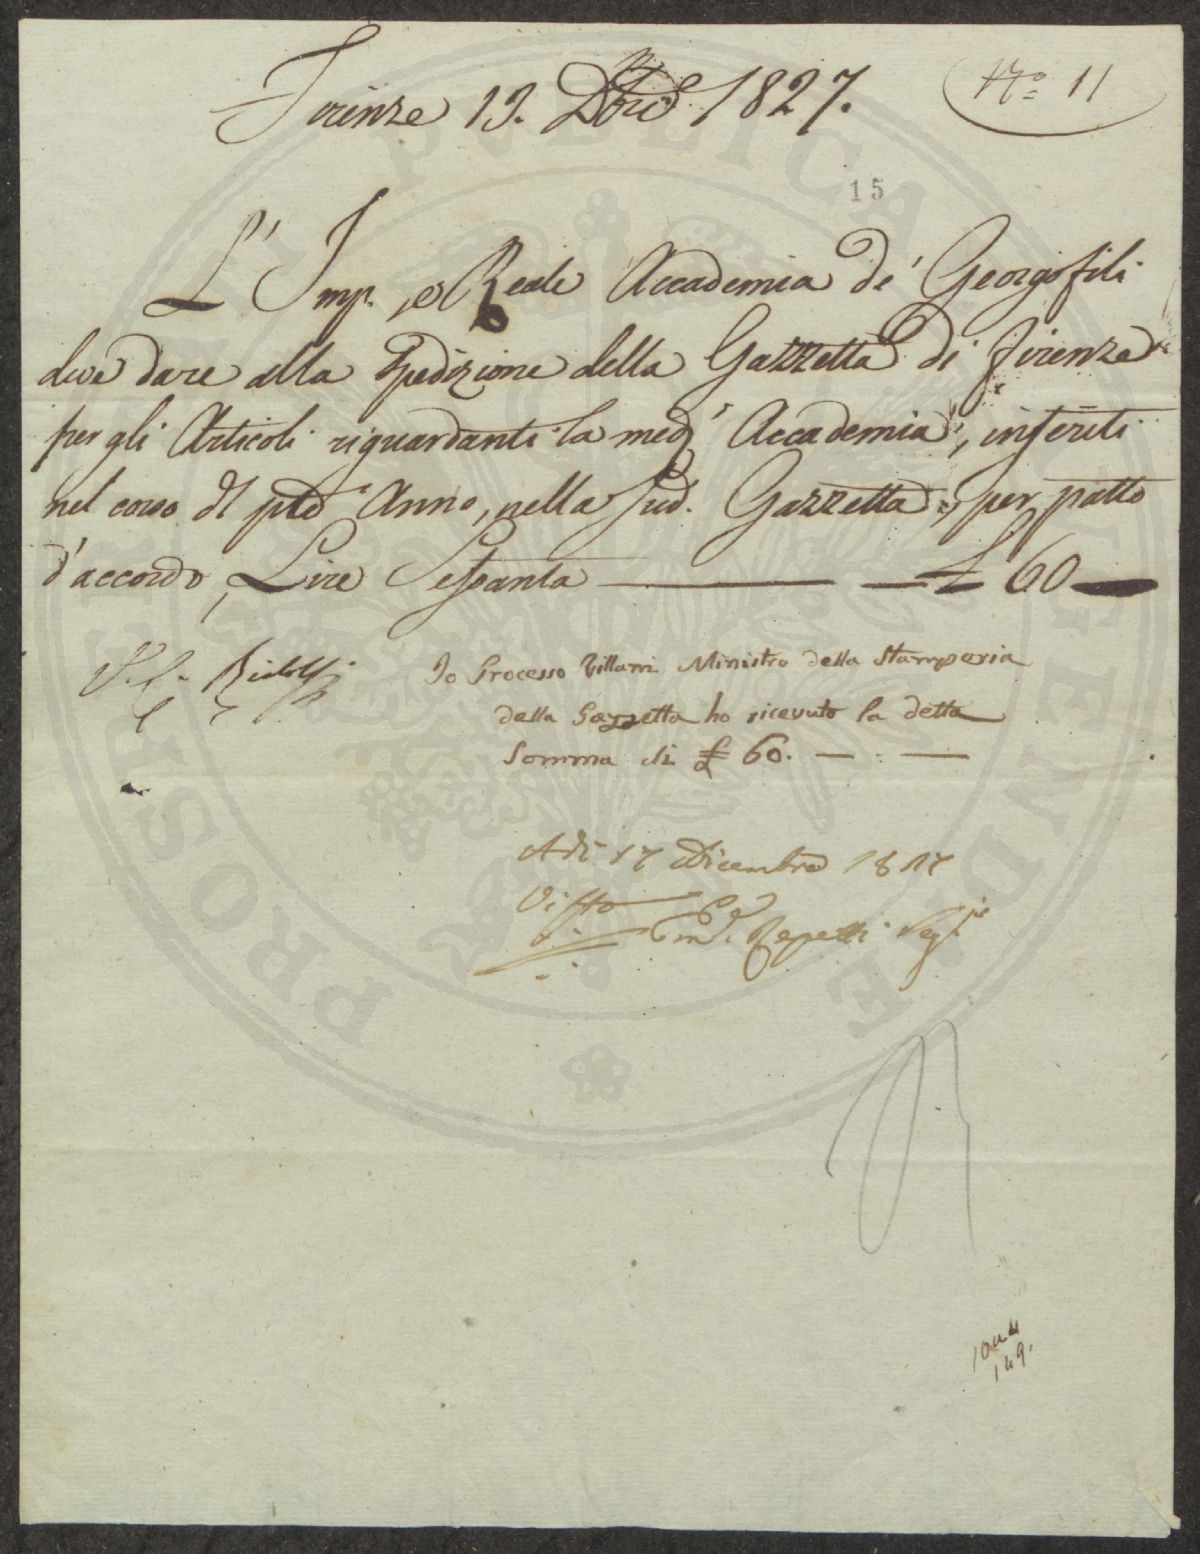 Firenze 13. Dbre 1827.
No. 11
15
L' Imp. e Reale Accademia de' Georgofili
deve dare alla Spedizione della Gazzetta di Firenze
per gli Articoli riguardanti la med.a Accademia, inseriti
nel corso del pte Anno, nella sud. Gazzetta, per patto
d'accordo, Lire Sessanta — — £ 60 —
V. C. Ridolfi
Io Processo Villani Ministro della Stamperia
della Gazzetta ho ricevuto la detta
Somma di £ 60. — : —
Adi 17 Dicembre 1827
Visto
Em.le Repetti Seg.rio
PVBLICAE
PROSPERITATI
AVGENDAE
149.